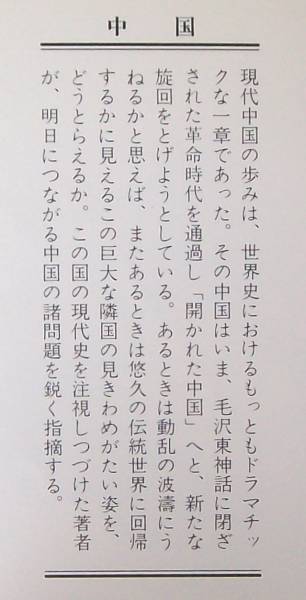 中国
現代中国の歩みは、世界史におけるもっともドラマチッ
クな一章であった。その中国はいま、毛沢東神話に閉ざ
された革命時代を通過し「開かれた中国」へと、新たな
旋回をとげようとしている。あるときは動乱の波濤にう
ねるかと思えば、またあるときは悠久の伝統世界に回帰
するかに見えるこの巨大な隣国の見きわめがたい姿を、
どうとらえるか。この国の現代史を注視しつづけた著者
が、明日につながる中国の諸問題を鋭く指摘する。